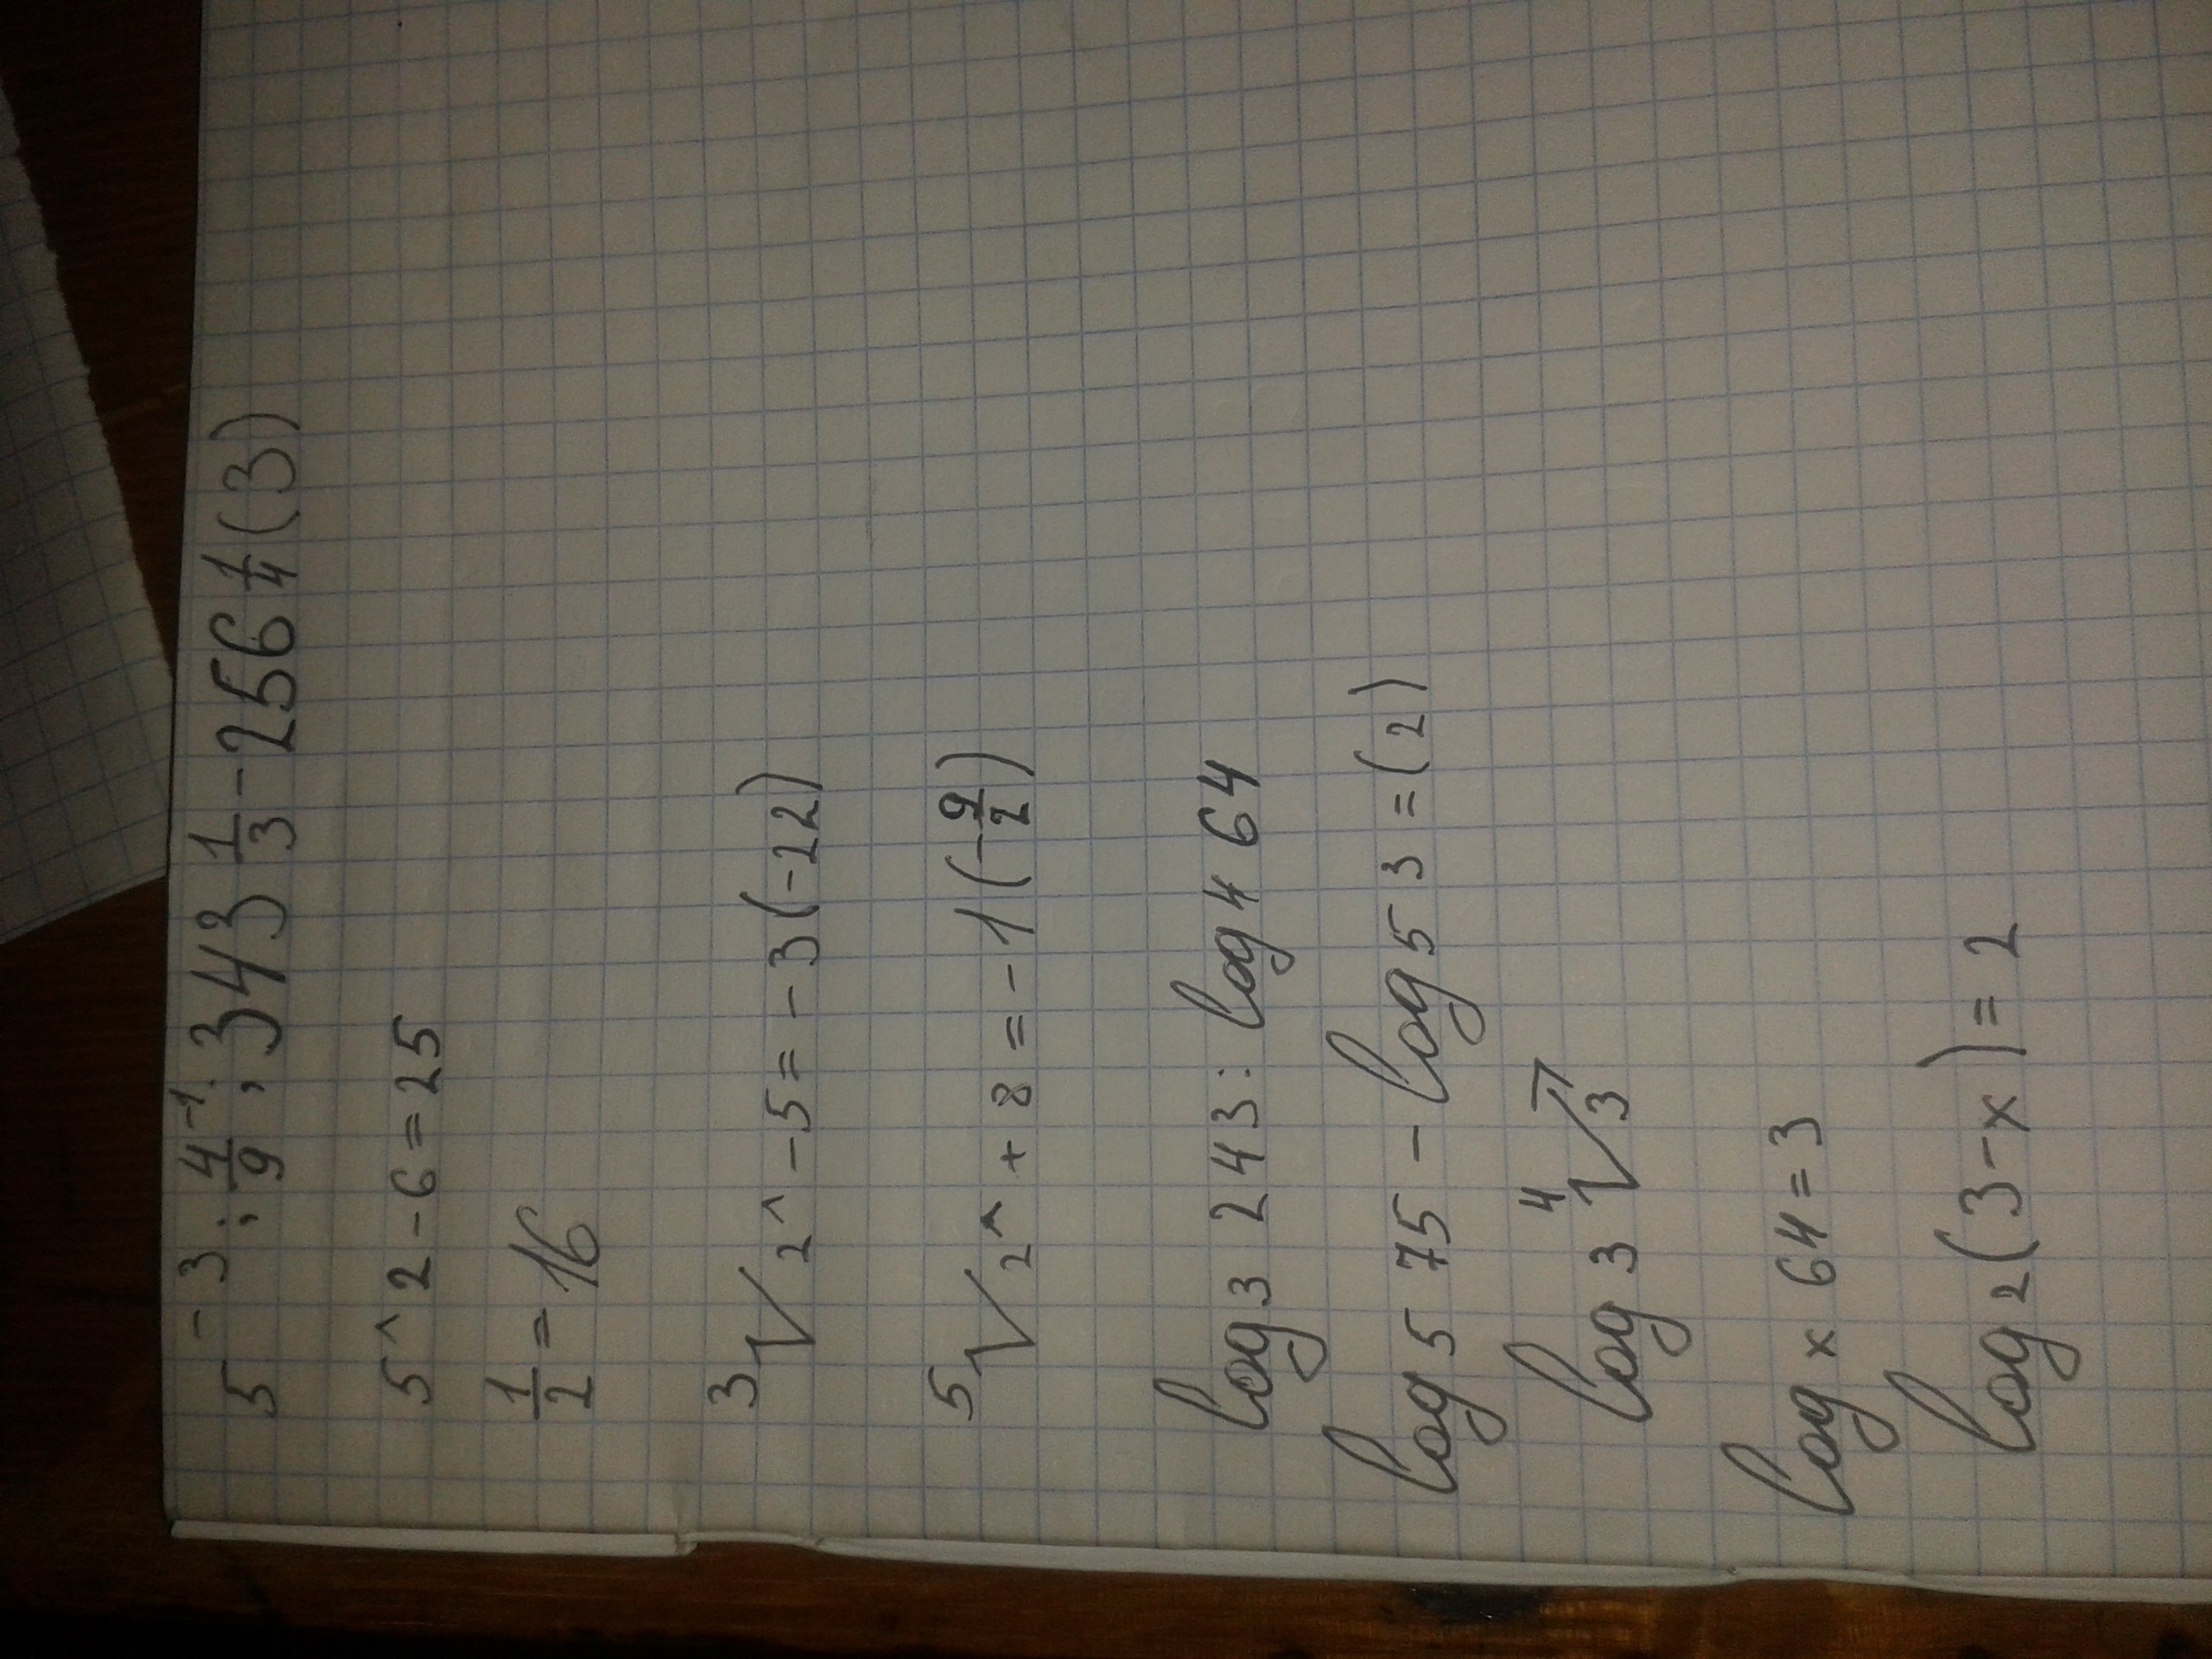 5 - 3 ; 4/9 -1 ; 343 1/3 - 256 1/4 (3)
5^2 - 6 = 25
1/2 = 16
3√2^ - 5 = - 3 (-22)
5√2^ + 8 = - 1 (-9/2)
log3 243 : log4 64
log5 75 - log5 3 = (2)
log3 4√3
logx 64 = 3
log2 (3 - x) = 2